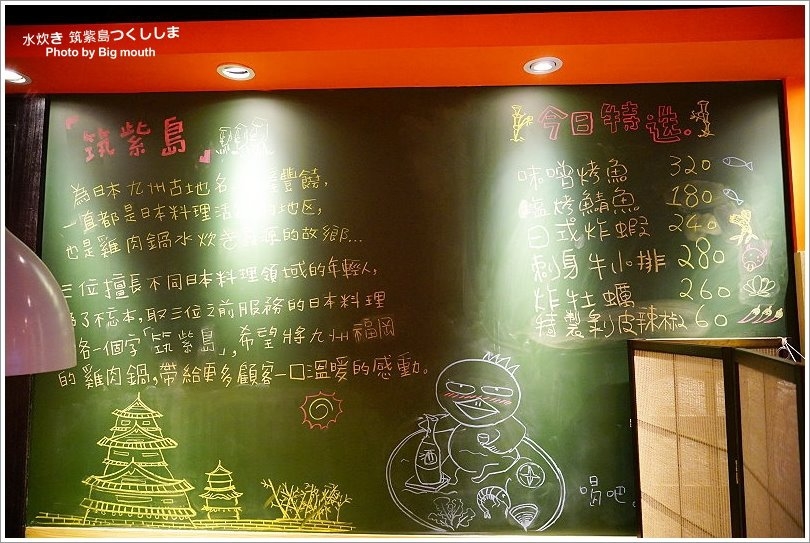 水炊き 筑紫島つくししま
Photo by Big mouth
「筑紫島」
為日本九州古地名 豐饒,
一直都是日本料理活 地区,
也是雞肉鍋水炊き 源的故鄉...
三位擅長不同日本料理領域的年輕人,
了不忘本,取三位之前服務的日本料理
各一個字「筑紫島」,希望將九州福岡
的雞肉鍋,帶給更多顧客一口溫暖的感動。
今日特选.
味噌烤魚 320
塩烤鯖魚 180
日式炸蝦 240
刺身牛小排 280
炸牡蠣 260
特製剝皮辣椒 60
酒
喝吧.